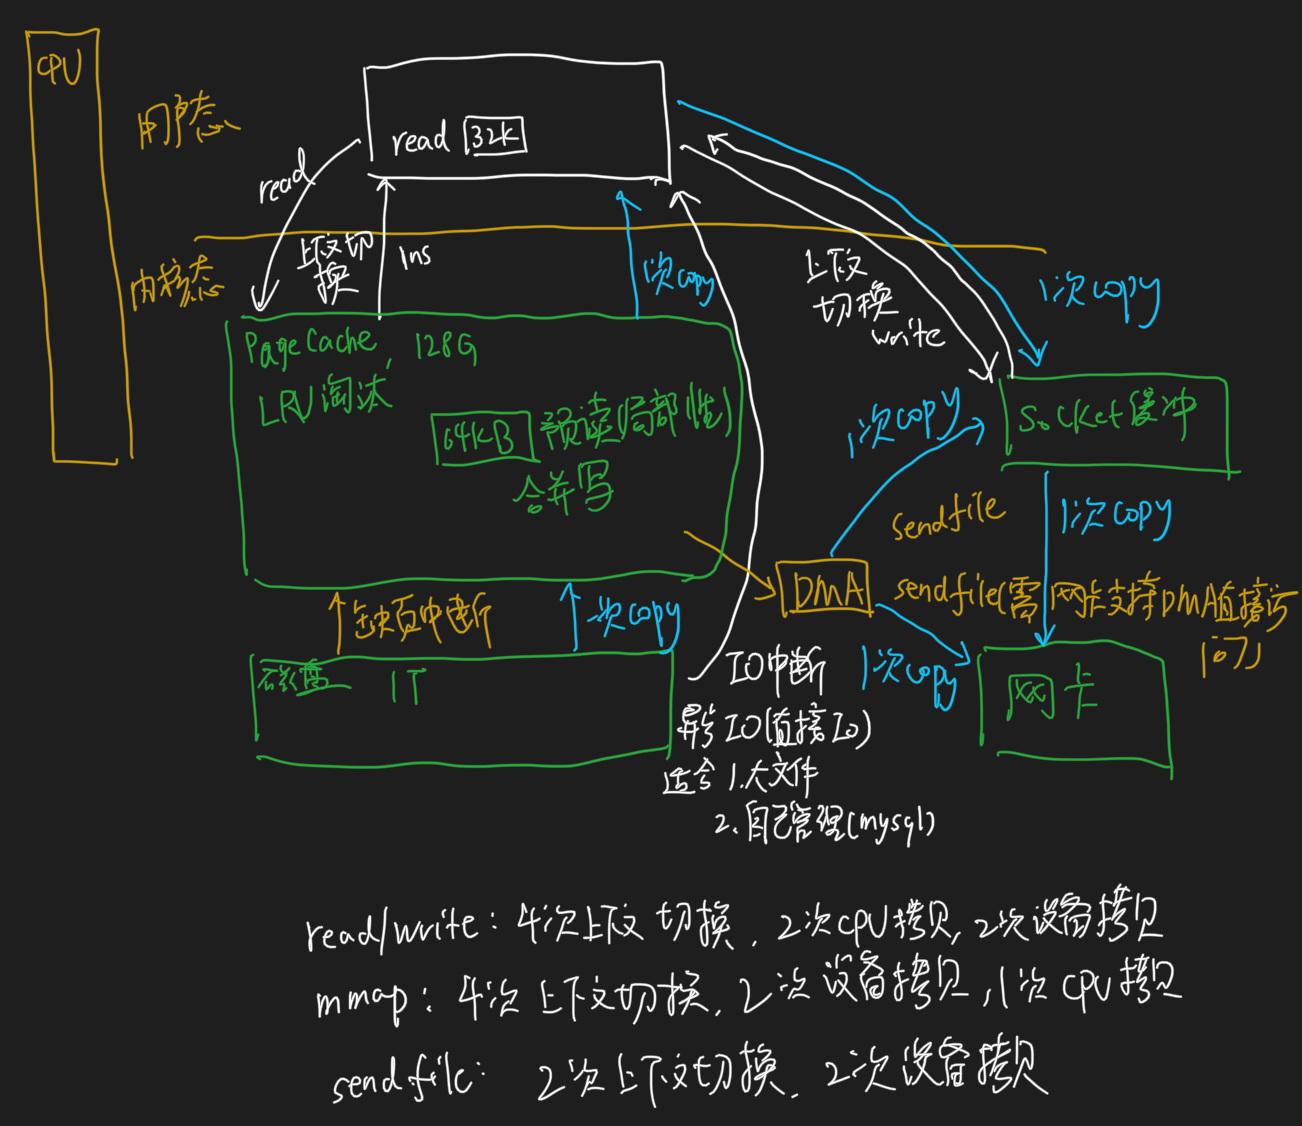 CPU
用户态
read 32K
read
内核态
上下文切
换
1ns
1次copy
上下文
切换
write
1次copy
PageCache, 128G
LRU淘汰
64KB 预读(局部性)
合并写
1次copy
Socket缓冲
sendfile
1次copy
DMA
sendfile(需网卡支持DMA直接访
问)
缺页中断
一次copy
1次copy
磁盘 1T
IO中断
异步IO(直接IO)
适合 1.大文件
2.自己管理(mysql)
网卡
read/write: 4次上下文切换, 2次CPU拷贝, 2次设备拷贝
mmap: 4次上下文切换, 2次设备拷贝, 1次CPU拷贝
sendfile: 2次上下文切换, 2次设备拷贝